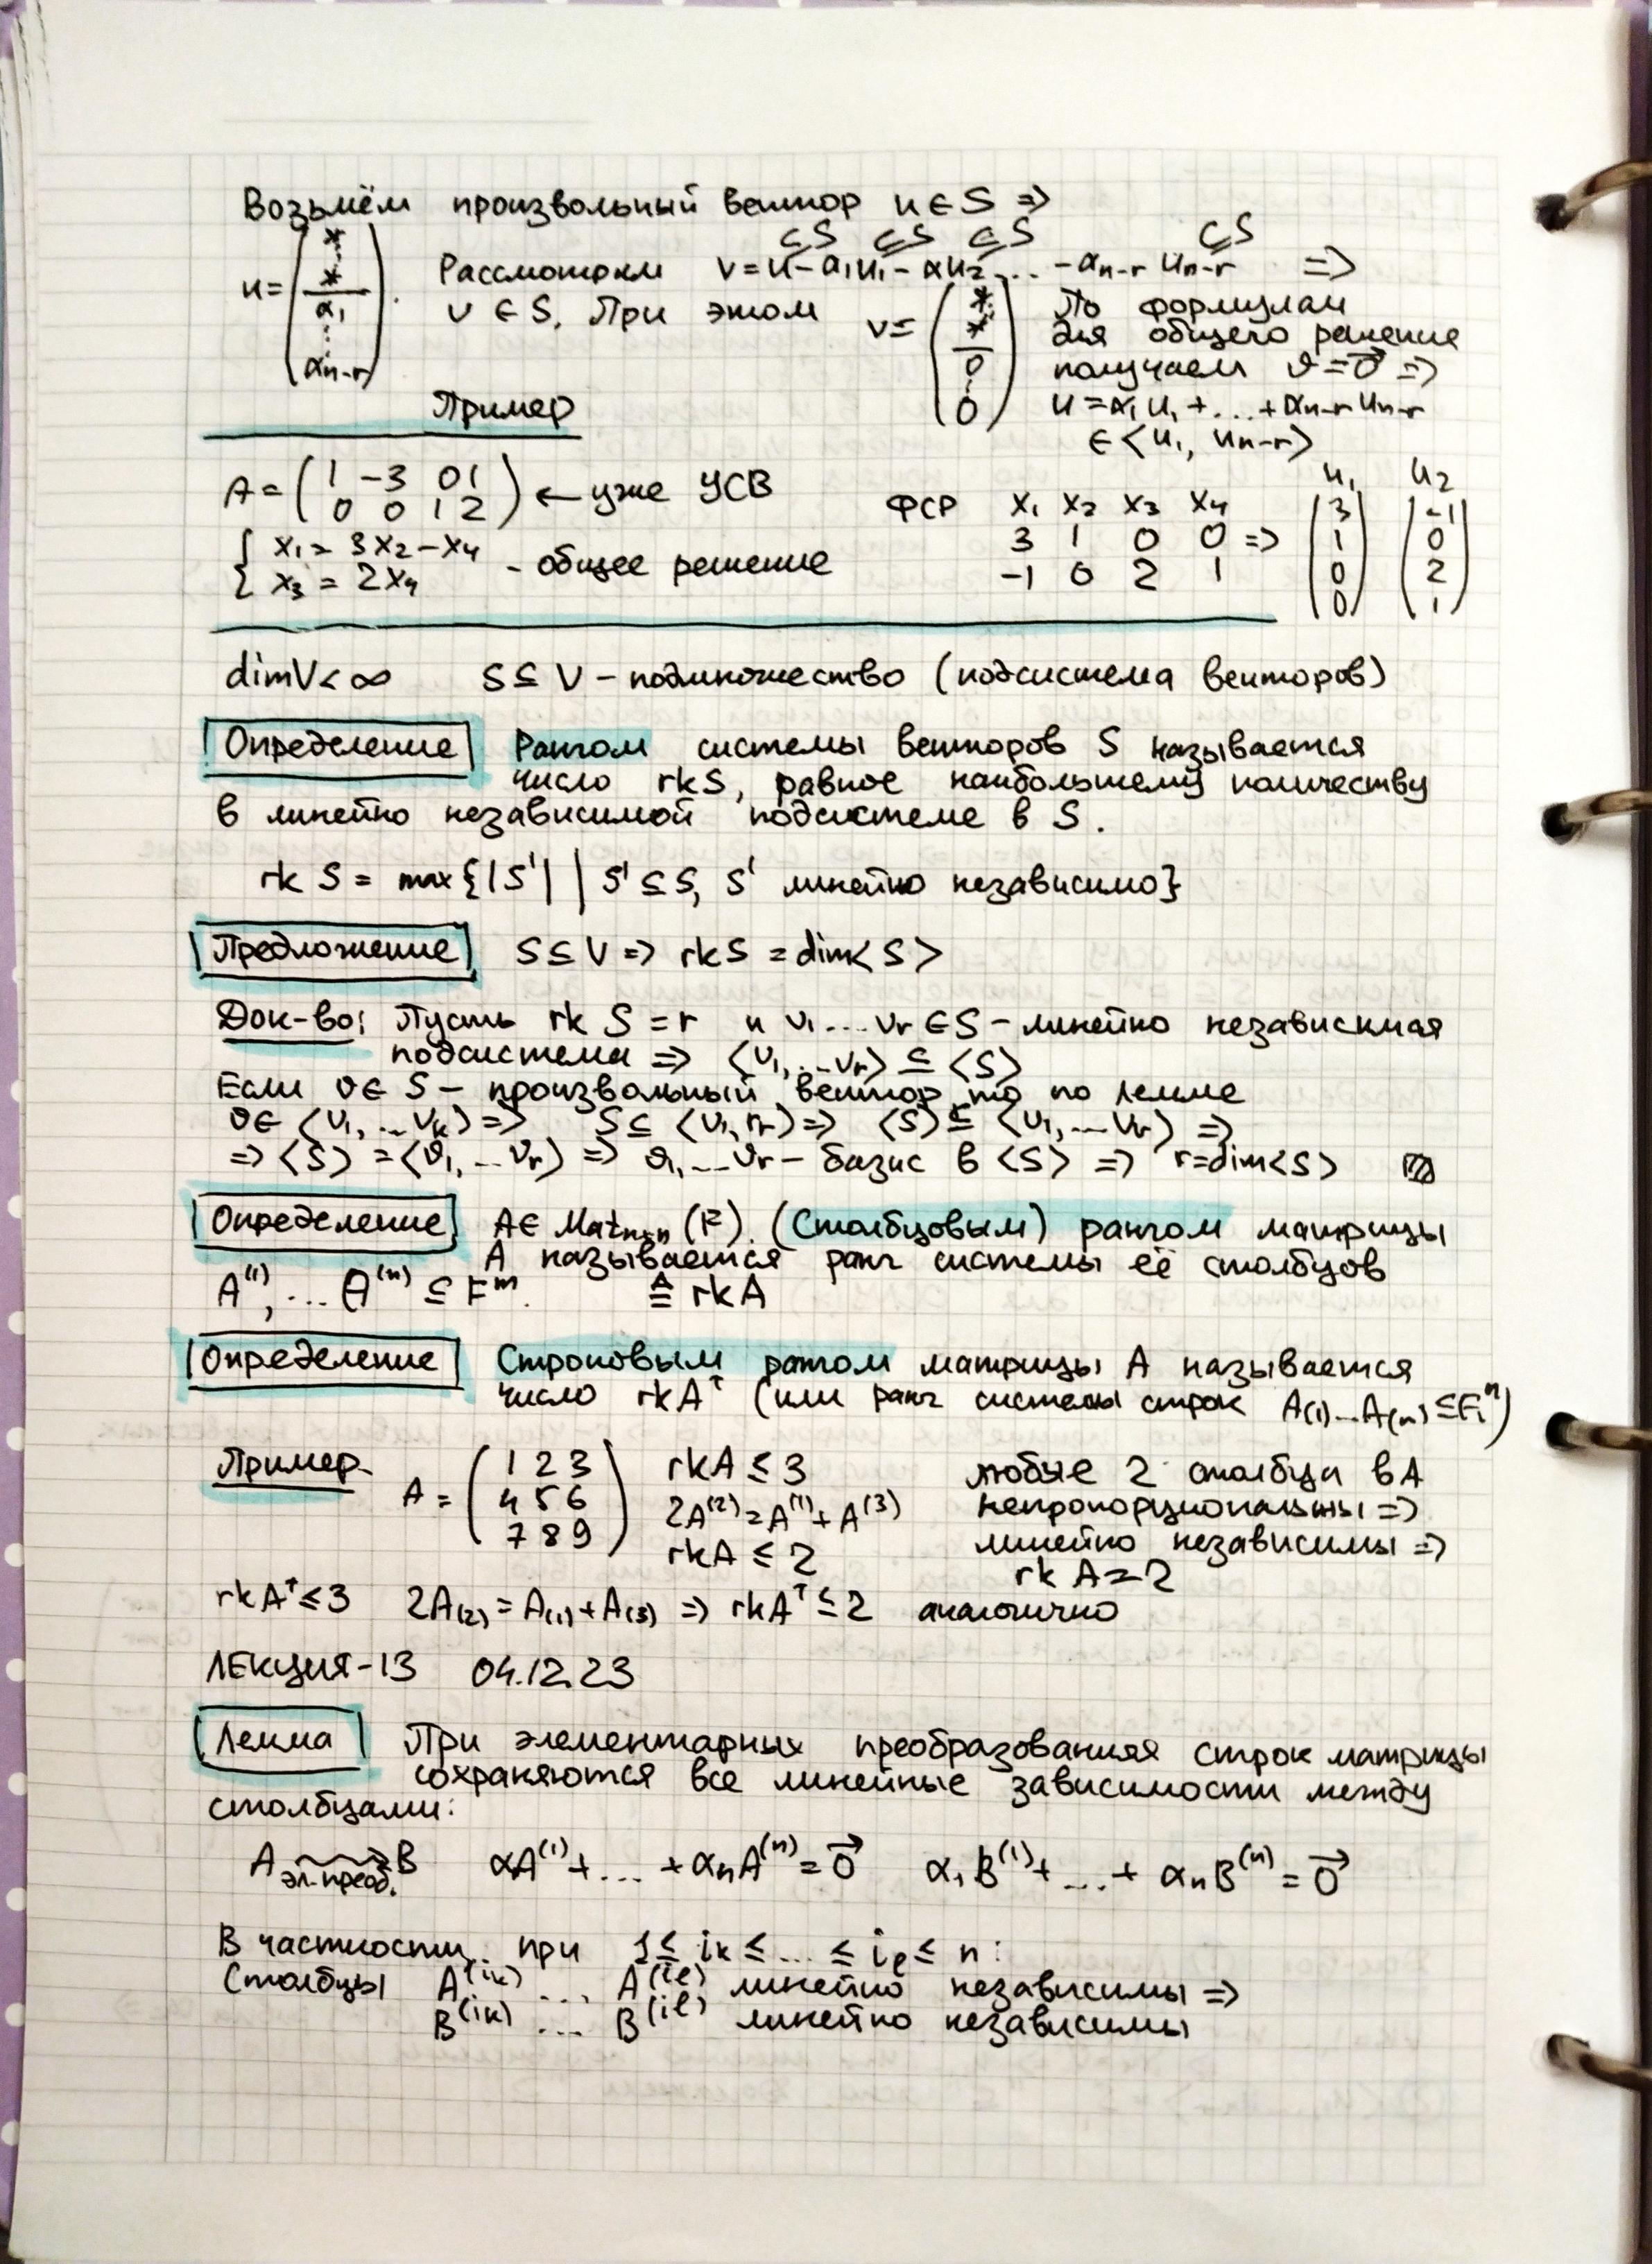 Возьмём произвольный вектор u ∈ S ⇒
u = (* ⋮ * α₁ ⋮ αₙ₋ᵣ). Рассмотрим v = u − α₁u₁ − αu₂ ... − αₙ₋ᵣ uₙ₋ᵣ ⇒
∈S ∈S ∈S ∈S
v ∈ S. При этом v = (* ⋮ * 0 ⋮ 0) По формулам
для общего решение
получаем v = 0⃗ ⇒
u = α₁u₁ + ... + αₙ₋ᵣ uₙ₋ᵣ
∈ <u₁, uₙ₋ᵣ>
Пример
A = (1 −3 0 1
0 0 1 2) ← уже УСВ
{ x₁ = 3x₂ − x₄
{ x₃ = 2x₄ - общее решение
ФСР x₁ x₂ x₃ x₄ u₁ u₂
3 1 0 0 ⇒ (3 1 0 0) (−1 0 2 1)
−1 0 2 1
dimV < ∞ S ⊆ V – подмножество (подсистема векторов)
Определение Рангом системы векторов S называется
число rkS, равное наибольшему количеству
в линейно независимой подсистеме в S.
rk S = max{|S'| | S' ⊆ S, S' линейно независимо}
Предложение S ⊆ V ⇒ rkS = dim<S>
Док-во: Пусть rk S = r и v₁...vᵣ ∈ S – линейно независимая
подсистема ⇒ <v₁,...vᵣ> ⊆ <S>
Если v ∈ S – произвольный вектор, то по лемме
v ∈ <v₁,...vₖ> ⇒ S ⊆ <v₁, rᵣ> ⇒ <S> ⊆ <v₁,...vᵣ> ⇒
⇒ <S> = <v₁,...vᵣ> ⇒ v₁,...vᵣ – базис в <S> ⇒ r = dim<S>
Определение A ∈ Matₙₓₙ(F). (Столбцовым) рангом матрицы
A называется ранг системы её столбцов
A⁽¹⁾, ... A⁽ⁿ⁾ ⊆ Fᵐ. ≙ rkA
Определение Строковым рангом матрицы A называется
число rkAᵀ (или ранг системы строк A₍₁₎...A₍ₘ₎ ⊆ Fⁿ)
Пример. A = (1 2 3
4 5 6
7 8 9)
rkA ≤ 3
2A⁽²⁾ = A⁽¹⁾ + A⁽³⁾
rkA ≤ 2
любые 2 столбца в A
непропорциональны ⇒
линейно независимы ⇒
rk A = 2
rkAᵀ ≤ 3 2A₍₂₎ = A₍₁₎ + A₍₃₎ ⇒ rkAᵀ ≤ 2 аналогично
ЛЕКЦИЯ-13 04.12.23
Лемма При элементарных преобразования строк матрицы
сохраняются все линейные зависимости между
столбцами:
A ⇝ B αA⁽¹⁾ + ... + αₙA⁽ⁿ⁾ = 0⃗ α₁B⁽¹⁾ + ... + αₙB⁽ⁿ⁾ = 0⃗
эл. преоб.
В частности, при 1 ≤ iₖ ≤ ... ≤ iₗ ≤ n:
Столбцы A⁽ⁱᵏ⁾ ... A⁽ⁱˡ⁾ линейно независимы ⇒
B⁽ⁱᵏ⁾ ... B⁽ⁱˡ⁾ линейно независимы